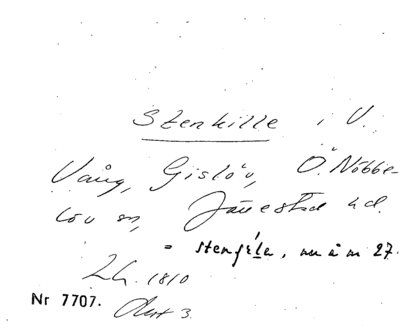 Stenkille i V.
Vång, Gislöv, Ö. Nöbbe-
löv sn, Järrestad hd.
= stenkila, nu å m 27.
LH. 1810
Nr 7707.